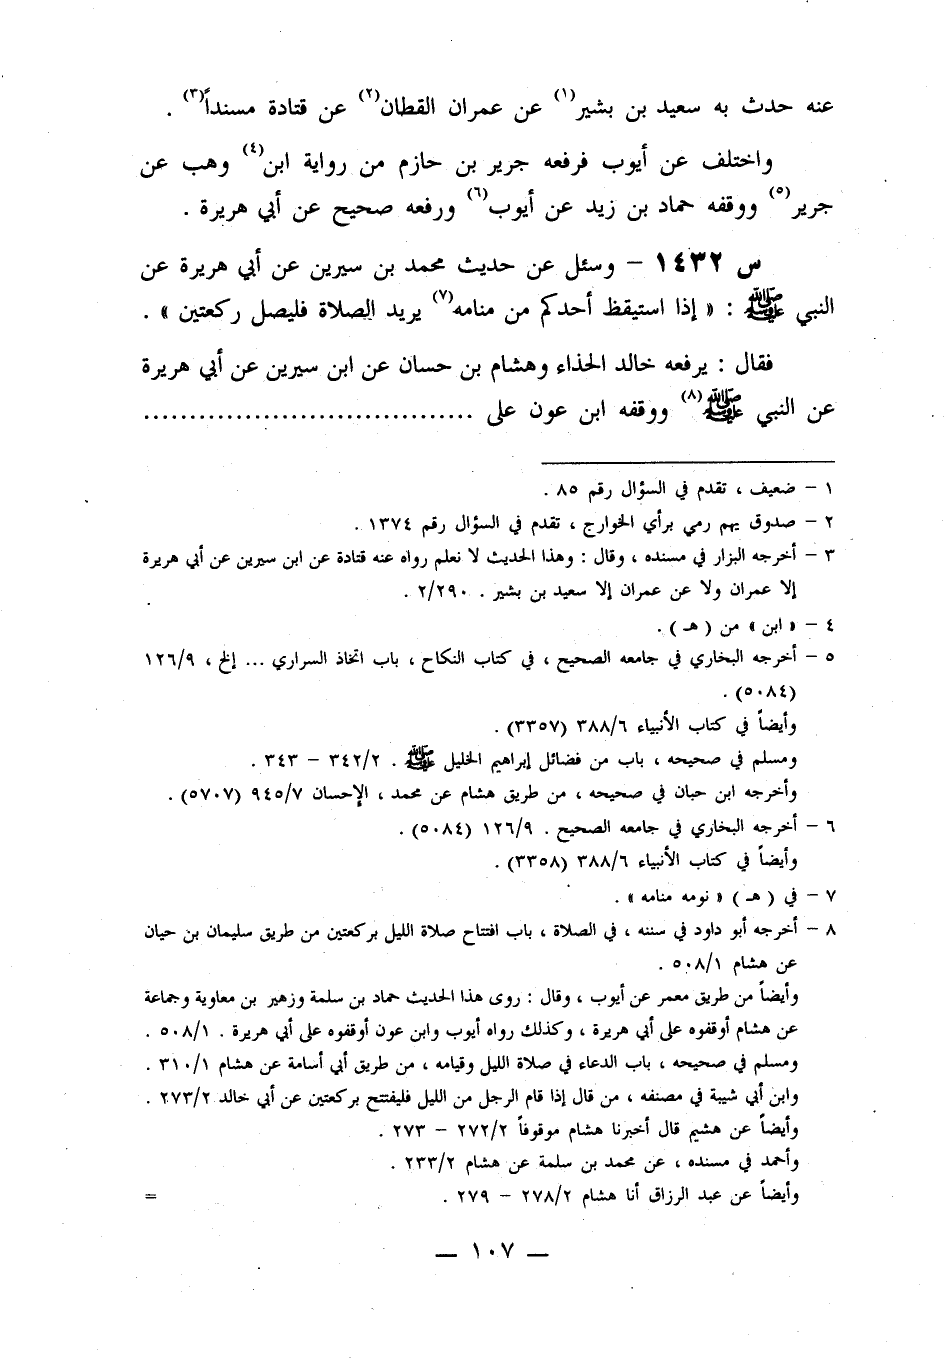 عنه حدث به سعيد بن بشير(١) عن عمران القطان(٢) عن قتادة مسنداً(٣) .
واختلف عن أيوب فرفعه جرير بن حازم من رواية ابن(٤) وهب عن
جرير(٥) ووقفه حماد بن زيد عن أيوب(٦) ورفعه صحيح عن أبي هريرة .
س ١٤٣٢ – وسئل عن حديث محمد بن سيرين عن أبي هريرة عن
النبي ﷺ : « إذا استيقظ أحدكم من منامه(٧) يريد الصلاة فليصل ركعتين » .
فقال : يرفعه خالد الحذاء وهشام بن حسان عن ابن سيرين عن أبي هريرة
عن النبي ﷺ(٨) ووقفه ابن عون على ....................................
١ – ضعيف ، تقدم في السؤال رقم ٨٥ .
٢ – صدوق يهم رمي برأي الخوارج ، تقدم في السؤال رقم ١٣٧٤ .
٣ – أخرجه البزار في مسنده ، وقال : وهذا الحديث لا نعلم رواه عنه قتادة عن ابن سيرين عن أبي هريرة
إلا عمران ولا عن عمران إلا سعيد بن بشير . ٢/٢٩٠ .
٤ – « ابن » من ( هـ ) .
٥ – أخرجه البخاري في جامعه الصحيح ، في كتاب النكاح ، باب اتخاذ السراري ... إلخ ، ١٢٦/٩
(٥٠٨٤) .
وأيضاً في كتاب الأنبياء ٣٨٨/٦ (٣٣٥٧) .
ومسلم في صحيحه ، باب من فضائل إبراهيم الخليل ﷺ . ٣٤٢/٢ – ٣٤٣ .
وأخرجه ابن حبان في صحيحه ، من طريق هشام عن محمد ، الإحسان ٩٤٥/٧ (٥٧٠٧) .
٦ – أخرجه البخاري في جامعه الصحيح . ١٢٦/٩ (٥٠٨٤) .
وأيضاً في كتاب الأنبياء ٣٨٨/٦ (٣٣٥٨) .
٧ – في ( هـ ) « نومه منامه » .
٨ – أخرجه أبو داود في سننه ، في الصلاة ، باب افتتاح صلاة الليل بركعتين من طريق سليمان بن حيان
عن هشام ٥٠٨/١ .
وأيضاً من طريق معمر عن أيوب ، وقال : روى هذا الحديث حماد بن سلمة وزهير بن معاوية وجماعة
عن هشام أوقفوه على أبي هريرة ، وكذلك رواه أيوب وابن عون أوقفوه على أبي هريرة . ٥٠٨/١ .
ومسلم في صحيحه ، باب الدعاء في صلاة الليل وقيامه ، من طريق أبي أسامة عن هشام ٣١٠/١ .
وابن أبي شيبة في مصنفه ، من قال إذا قام الرجل من الليل فليفتتح بركعتين عن أبي خالد ٢٧٣/٢ .
وأيضاً عن هشيم قال أخبرنا هشام موقوفاً ٢٧٢/٢ – ٢٧٣ .
وأحمد في مسنده ، عن محمد بن سلمة عن هشام ٢٣٣/٢ .
وأيضاً عن عبد الرزاق أنا هشام ٢٧٨/٢ – ٢٧٩ . =
— ١٠٧ —